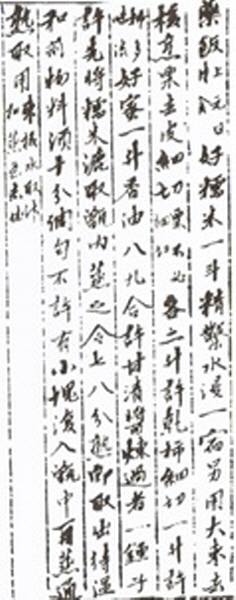 藥飯 上元日 好糯米一斗精鑿水浸一宿另用大棗去
核煮栗去皮細切 各二斗許乾柿細切一斗許
好蜜一斗香油八九合許甘清醬煉過者一鍾子
許先將糯米漉取甑內蒸之令七八分熟卽取出待溫
和前物料須十分細勻不許有小塊復入甑中再蒸
熟取用